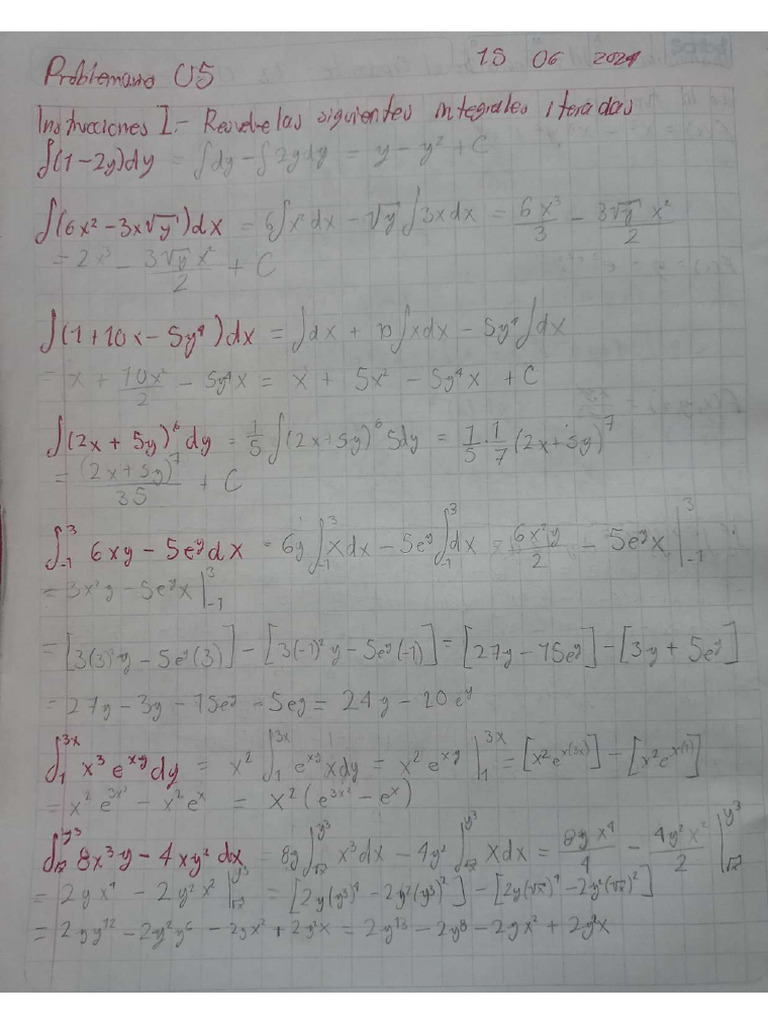 15 06 2021
Problemario U5
Instrucciones I.- Resuelve las siguientes integrales iteradas
∫(1-2y)dy = ∫dy - ∫2ydy = y - y² + C
∫(6x² - 3x√y)dx = 6∫x²dx - √y∫3xdx = 6x³/3 - 3√y x²/2
= 2x³ - 3√y x²/2 + C
∫(1+10x-5y⁴)dx = ∫dx + 10∫xdx - 5y⁴∫dx
= x + 10x²/2 - 5y⁴x = x + 5x² - 5y⁴x + C
∫(2x+5y)⁶dy = 1/5 ∫(2x+5y)⁶5dy = 1/5 · 1/7 (2x+5y)⁷
= (2x+5y)⁷/35 + C
∫₋₁³ 6xy - 5eʸdx = 6y∫₋₁³xdx - 5eʸ∫₋₁³dx = 6x²y/2 - 5eʸx |₋₁³
= 3x²y - 5eʸx |₋₁³
= [3(3)²y - 5eʸ(3)] - [3(-1)²y - 5eʸ(-1)] = [27y - 15eʸ] - [3y + 5eʸ]
= 27y - 3y - 15eʸ - 5eʸ = 24y - 20eʸ
∫₁^3x x³e^xy dy = x²∫₁^3x e^xy xdy = x²e^xy |₁^3x = [x²e^x(3x)] - [x²e^x(1)]
= x²e^3x² - x²eˣ = x²(e^3x² - eˣ)
∫_√x^y³ 8x³y - 4xy² dx = 8y∫_√x^y³ x³dx - 4y²∫_√x^y³ xdx = 8yx⁴/4 - 4y²x²/2 |_√x^y³
= 2yx⁴ - 2y²x² |_√x^y³ = [2y(y³)⁴ - 2y²(y³)²] - [2y(√x)⁴ - 2y²(√x)²]
= 2yy¹² - 2y²y⁶ - 2yx² + 2y²x = 2y¹³ - 2y⁸ - 2yx² + 2y²x